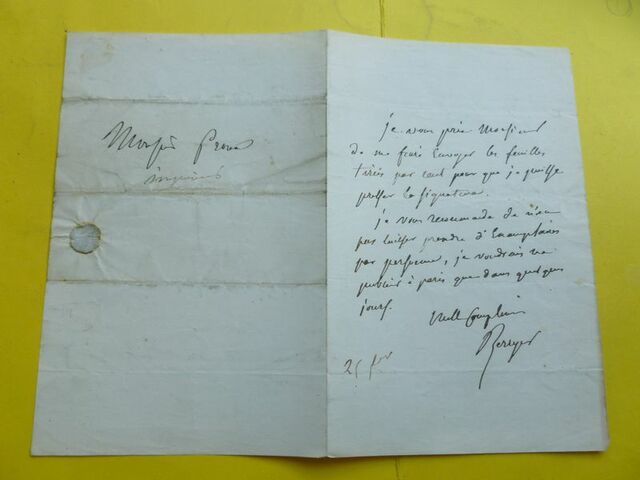 Monsieur
je vous prie Monsieur
de me faire Envoyer les feuilles
tirées par cent pour que je puisse
presser la signature.
je vous recommande de n'en
pas laisser prendre d'Exemplaires
par personne, je voudrais ne
publier à paris que dans quelques
jours.
Mille Compliments
Berryer
25